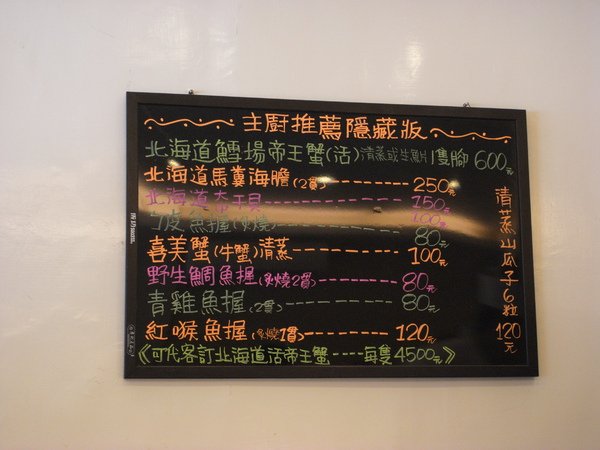 主廚推薦隱藏版
北海道鱈場帝王蟹(活)清蒸或生魚片1隻腳 600元
北海道馬糞海膽(2貫)---------250元
北海道 150元
魚握(炙燒) 80元
喜美蟹(牛蟹)清蒸---------100元
野生鯛魚握(炙燒2貫)------80元
青雞魚握(2貫)---------80元
紅喉魚握(炙燒1貫)---------120元
《可代客訂北海道活帝王蟹----每隻4500元》
清蒸山瓜子6粒120元